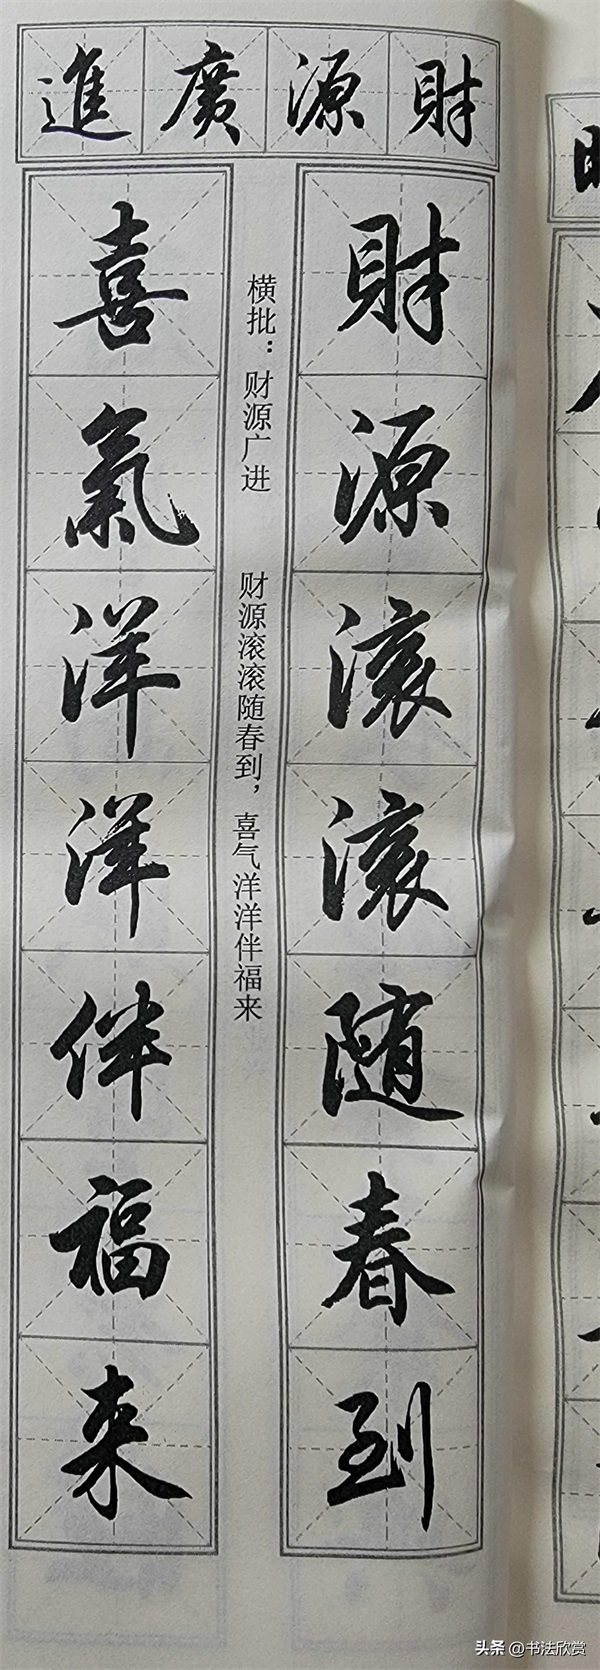 財源廣進
財源滚滚随春到
横批：财源广进
财源滚滚随春到，喜气洋洋伴福来
喜氣洋洋伴福来
头条 @书法欣赏